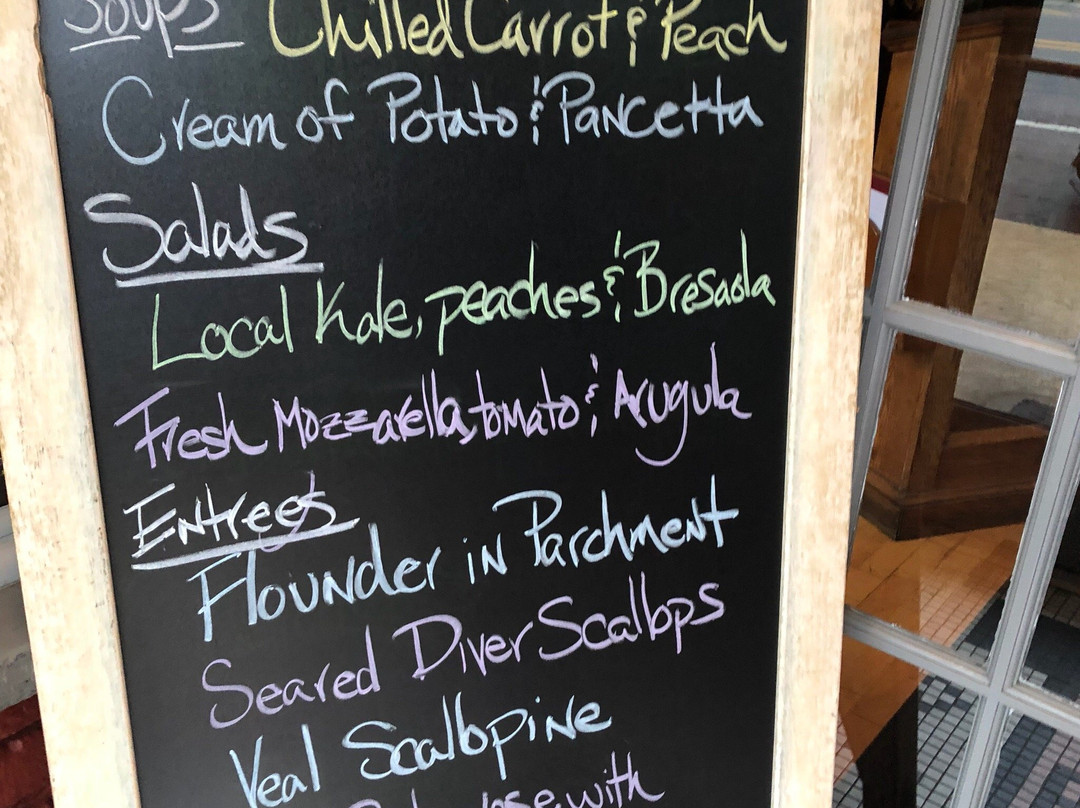 Soups Chilled Carrot & Peach
Cream of Potato & Pancetta
Salads
Local Kale, peaches & Bresaola
Fresh Mozzarella, tomato & Arugula
Entrees
Flounder in Parchment
Seared Diver Scallops
Veal Scallopine
with